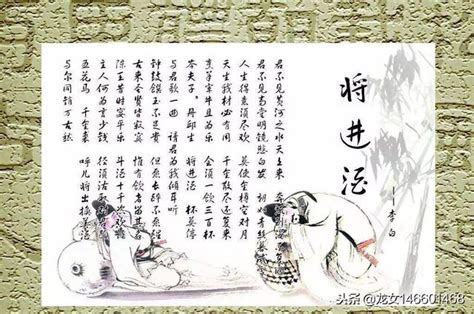 将进酒
——李白
君不见黄河之水天上来 奔流到海
君不见高堂明镜悲白发 朝如青丝
人生得意须尽欢 莫使金樽空对月
天生我材必有用 千金散尽还复来
烹羊宰牛且为乐 会须一饮三百杯
岑夫子 丹丘生 将进酒 杯莫停
与君歌一曲 请君为我倾耳听
钟鼓馔玉不足贵 但愿长醉不愿醒
古来圣贤皆寂寞 惟有饮者留其名
陈王昔时宴平乐 斗酒十千恣欢谑
主人何为言少钱 径须沽取对君酌
五花马 千金裘 呼儿将出换美酒
与尔同销万古愁
头条@龙女146601468